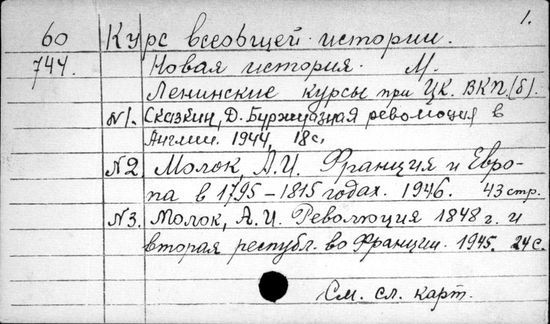 1.
60 Курс всеобщей истории.
744. Новая история. М.
Ленинские курсы при ЦК. ВКП.(б).
N1. Сказкин, Д. Буржуазная революция в
Англии. 1944, 18 с.
N2. Молок, А.И. Франция и Евро-
па в 1795-1815 годах. 1946. 43 стр.
N3. Молок, А.И. Революция 1848 г. и
вторая республ. во Франции. 1945. 24 с.
См. сл. карт.